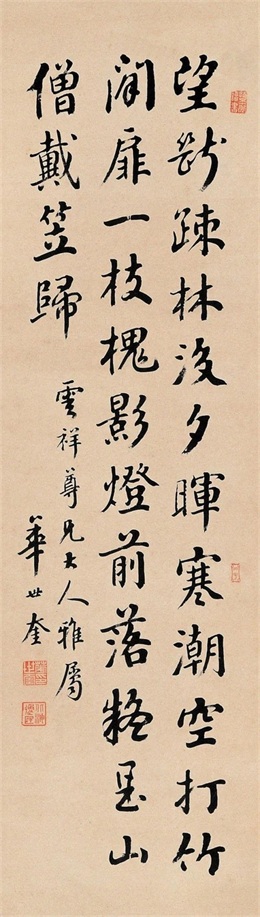 望斷疎林沒夕暉寒潮空打竹
間扉一枝槐影燈前落疑是山
僧戴笠歸
雲祥尊兄大人雅屬
華世奎